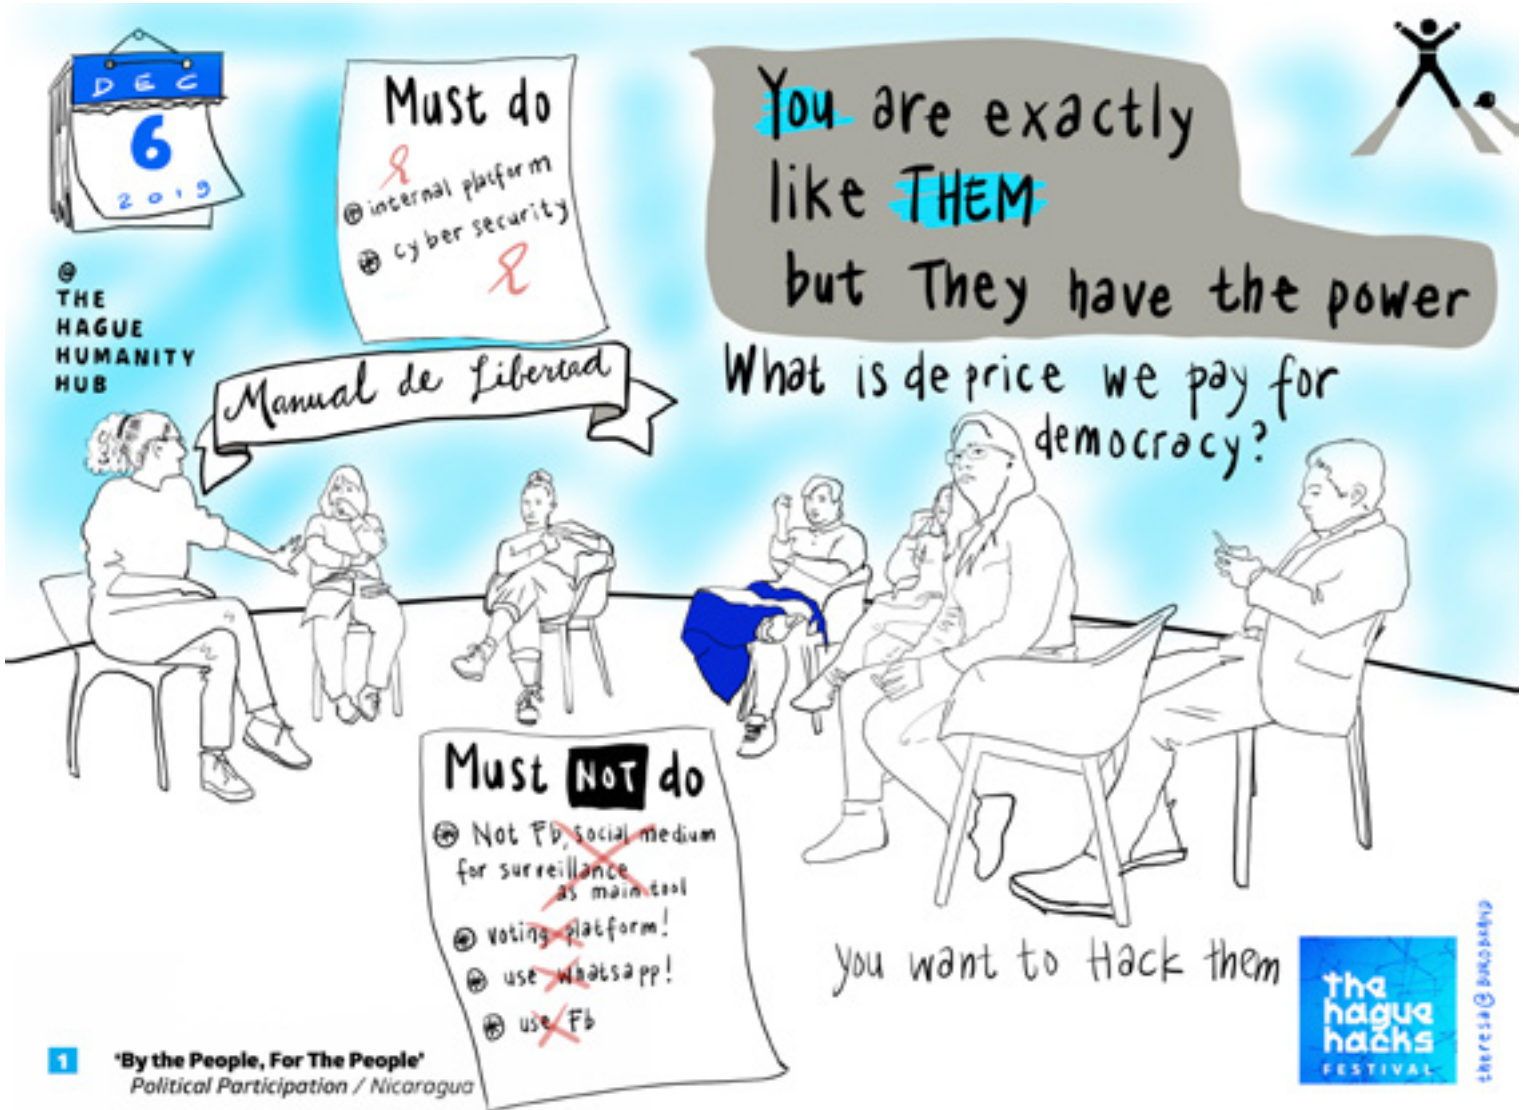 DEC
6
2019
@
THE
HAGUE
HUMANITY
HUB
Must do
internal platform
cyber security
Manual de Libertad
You are exactly
like THEM
but They have the power
What is de price we pay for
democracy?
Must NOT do
Not Fb, social medium
for surveillance
as main tool
voting platform!
use whatsapp!
use Fb
you want to Hack them
the
hague
hacks
FESTIVAL
theresa@BUROBRAND
1
'By the People, For The People'
Political Participation / Nicaragua